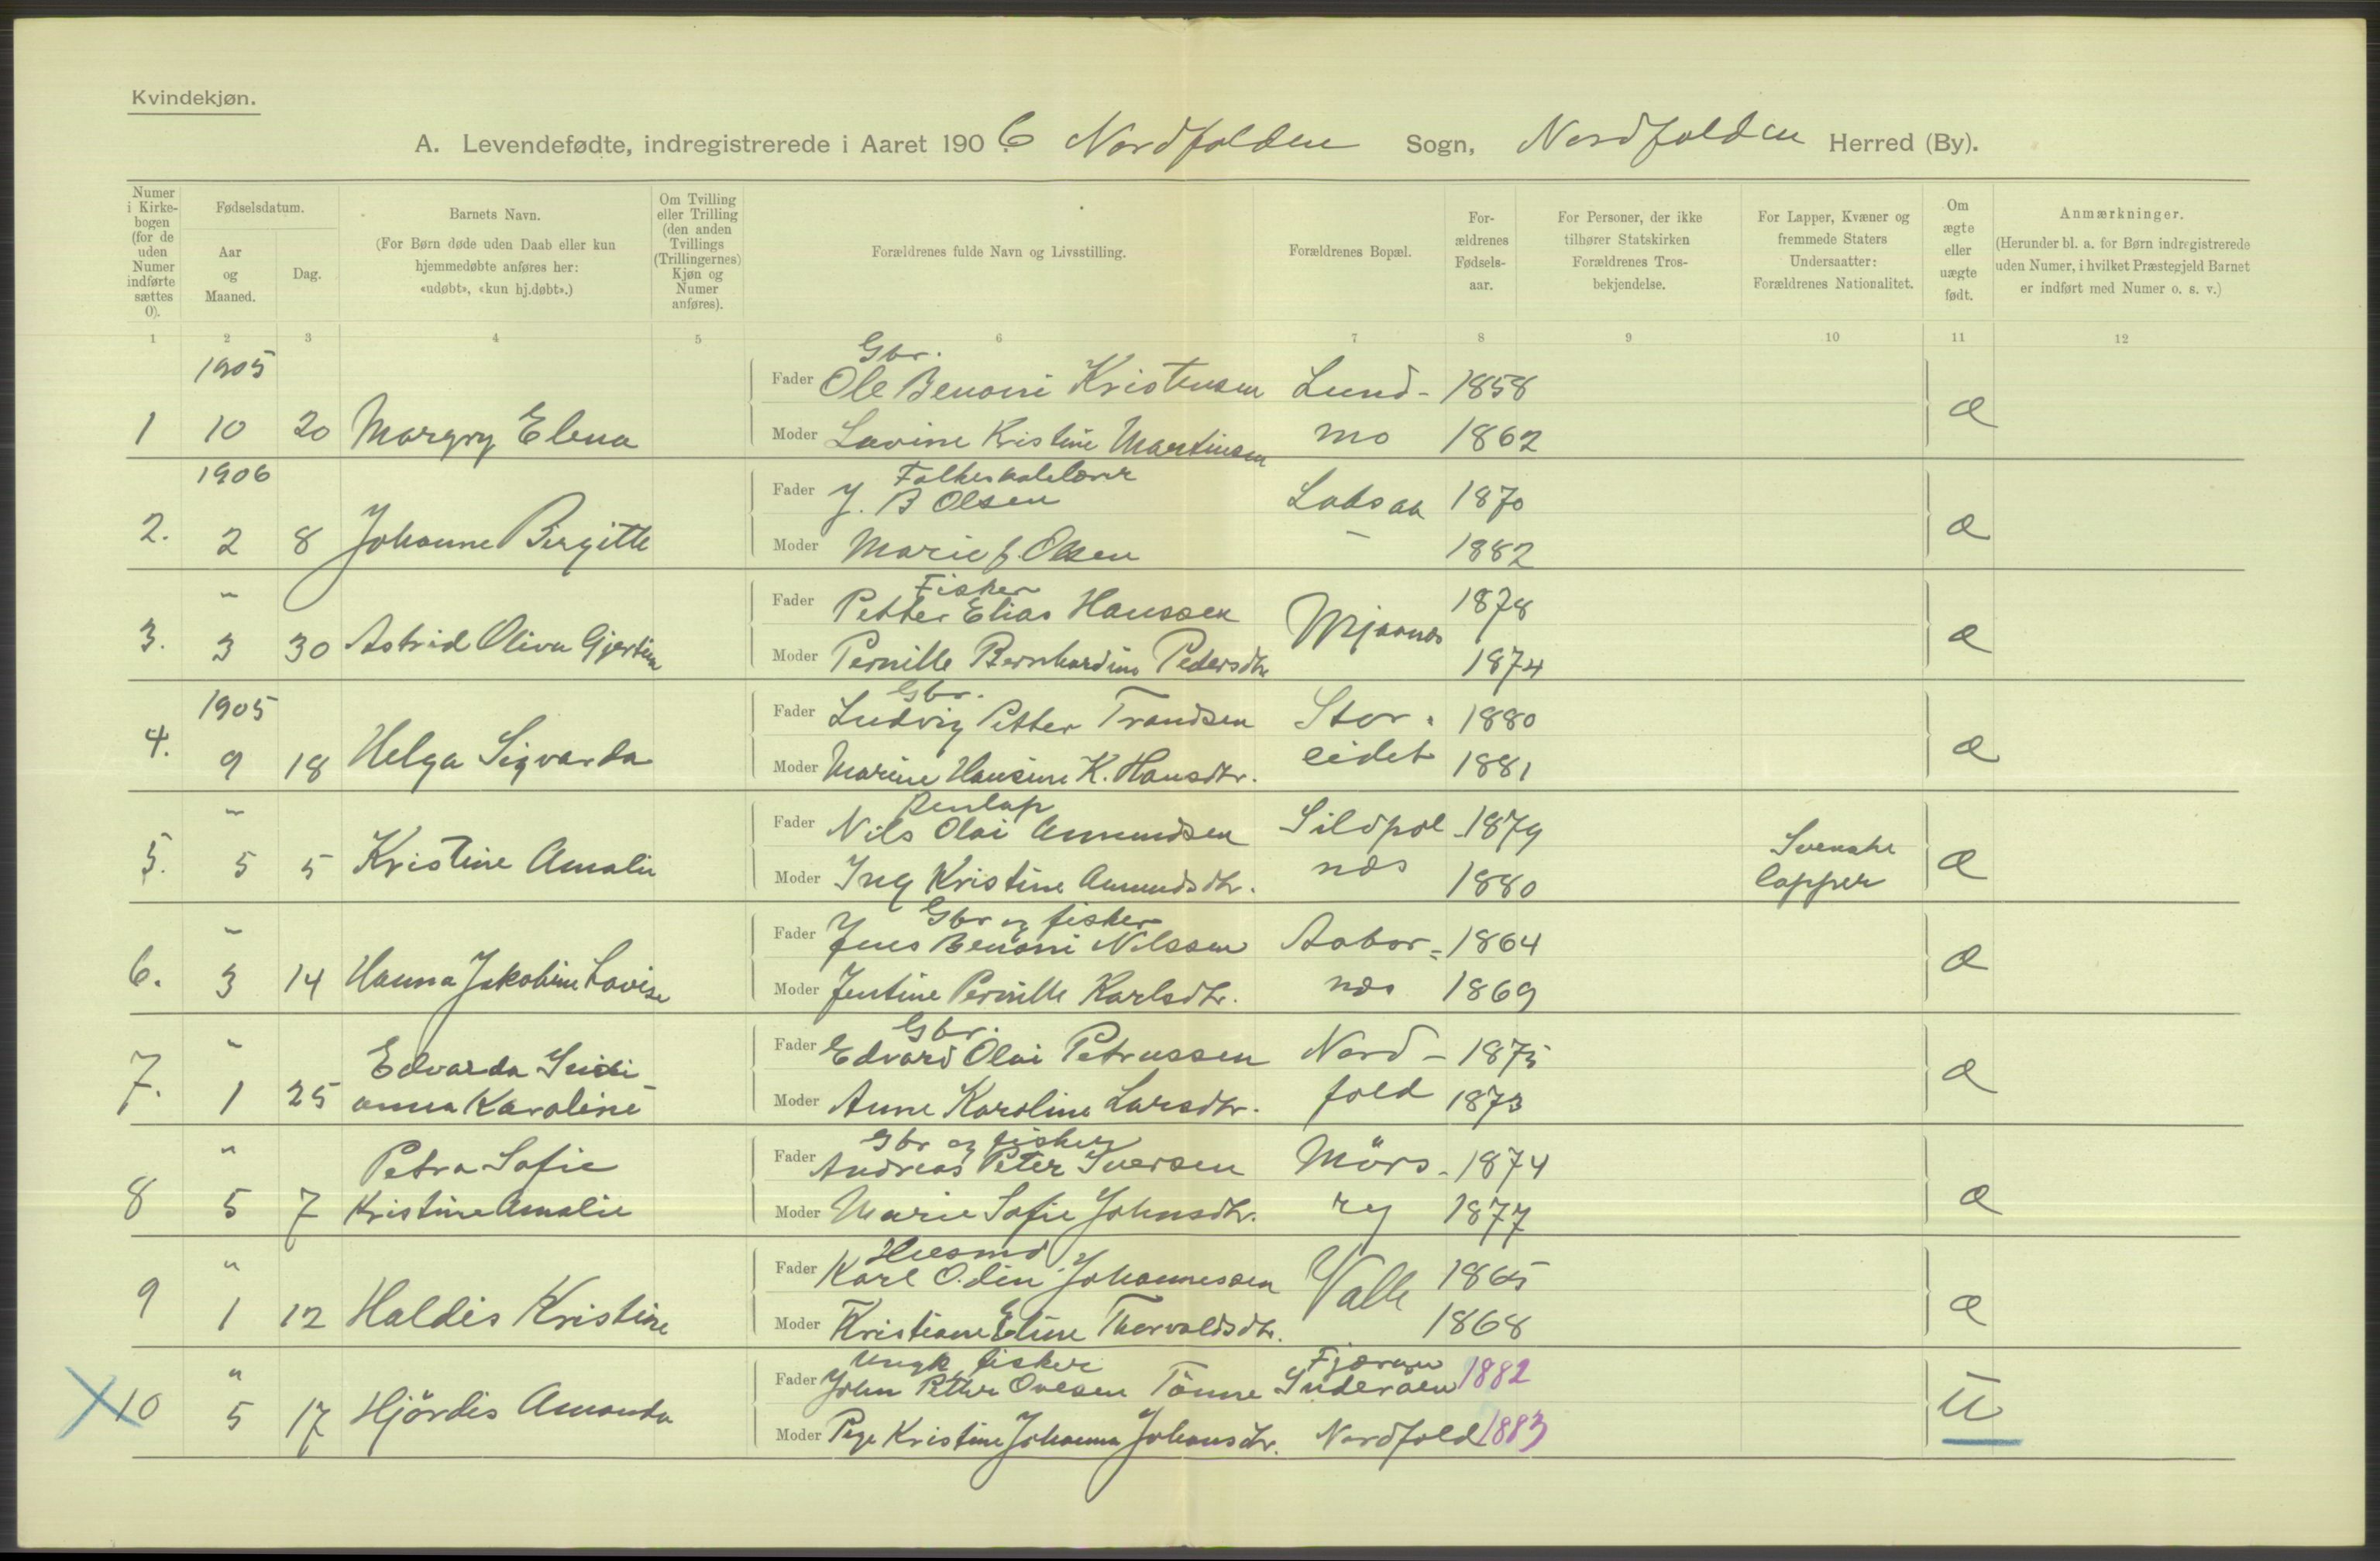 Kvindekjøn.
A. Levendefødte, indregistrerede i Aaret 190 6 Nordfolden Sogn, Nordfolden Herred (By).
Numer i Kirkebogen (for de uden Numer indførte sættes 0).
Fødselsdatum.
Aar og Maaned.
Dag.
Barnets Navn.
(For Børn døde uden Daab eller kun hjemmedøbte anføres her: «udøbt», «kun hj.døbt».)
Om Tvilling eller Trilling (den anden Tvillings (Trillingernes) Kjøn og Numer anføres).
Forældrenes fulde Navn og Livsstilling.
Forældrenes Bopæl.
Forældrenes Fødselsaar.
For Personer, der ikke tilhører Statskirken Forældrenes Trosbekjendelse.
For Lapper, Kvæner og fremmede Staters Undersaatter: Forældrenes Nationalitet.
Om ægte eller uægte født.
Anmærkninger.
(Herunder bl. a. for Børn indregistrerede uden Numer, i hvilket Præstegjeld Barnet er indført med Numer o. s. v.)
1 2 3 4 5 6 7 8 9 10 11 12
1905 Gbr.
Fader Ole Benoni Kristensen Lund- 1858
1 10 20 Margry Elena Moder Lovine Kristine Martinsen mo 1862 æ
1906 Folkeskolelærer
Fader J. B Olsen Lobsaa 1870
2. 2 8 Johanne Birgitte Moder Marie J. Olsen – 1882 æ
" Fisker
Fader Petter Elias Hanssen Mjaanes 1878
3. 3 30 Astrid Oliva Gjertine Moder Pernille Bernhardine Pedersdtr 1874 æ
1905 Gbr.
Fader Ludvig Petter Trondsen Stor- 1880
4. 9 18 Helga Sigvarda Moder Marine Hansine K. Hansdtr. eidet 1881 æ
" Renlap
Fader Nils Olai Amundsen Sildpol- 1879 Svenske
5. 5 5 Kristine Amalie Moder Ing Kristine Amundsdtr. næs 1880 lapper æ
" Gbr og fisker
Fader Jens Benoni Nilssen Aabor- 1864
6. 3 14 Hanna Jakobine Lovise Moder Jentine Pernille Karlsdtr. næs 1869 æ
" Gbr.
Fader Edvard Olai Petrussen Nord- 1875
7. 1 25 Edvarda
Anna Karoline Moder Anne Karoline Larsdtr. fold 1873 æ
" Gbr og fisker
Petra Sofie Fader Andreas Peter Iversen Mörs- 1874
8 5 7 Kristine Amalie Moder Marie Sofie Johnsdtr. ry 1877 æ
" Husmd
Fader Karl Odin Johannessen Valle 1865
9 1 12 Haldis Kristine Moder Kristiane Eline Thorvaldsdtr. 1868 æ
" Ungk. fisker Fjæran
Fader John Petter Ovesen Tönne Inderöen 1882
10 5 17 Hjördis Amanda Moder Pige Kristine Johanna Johansdtr. Nordfold 1883 U